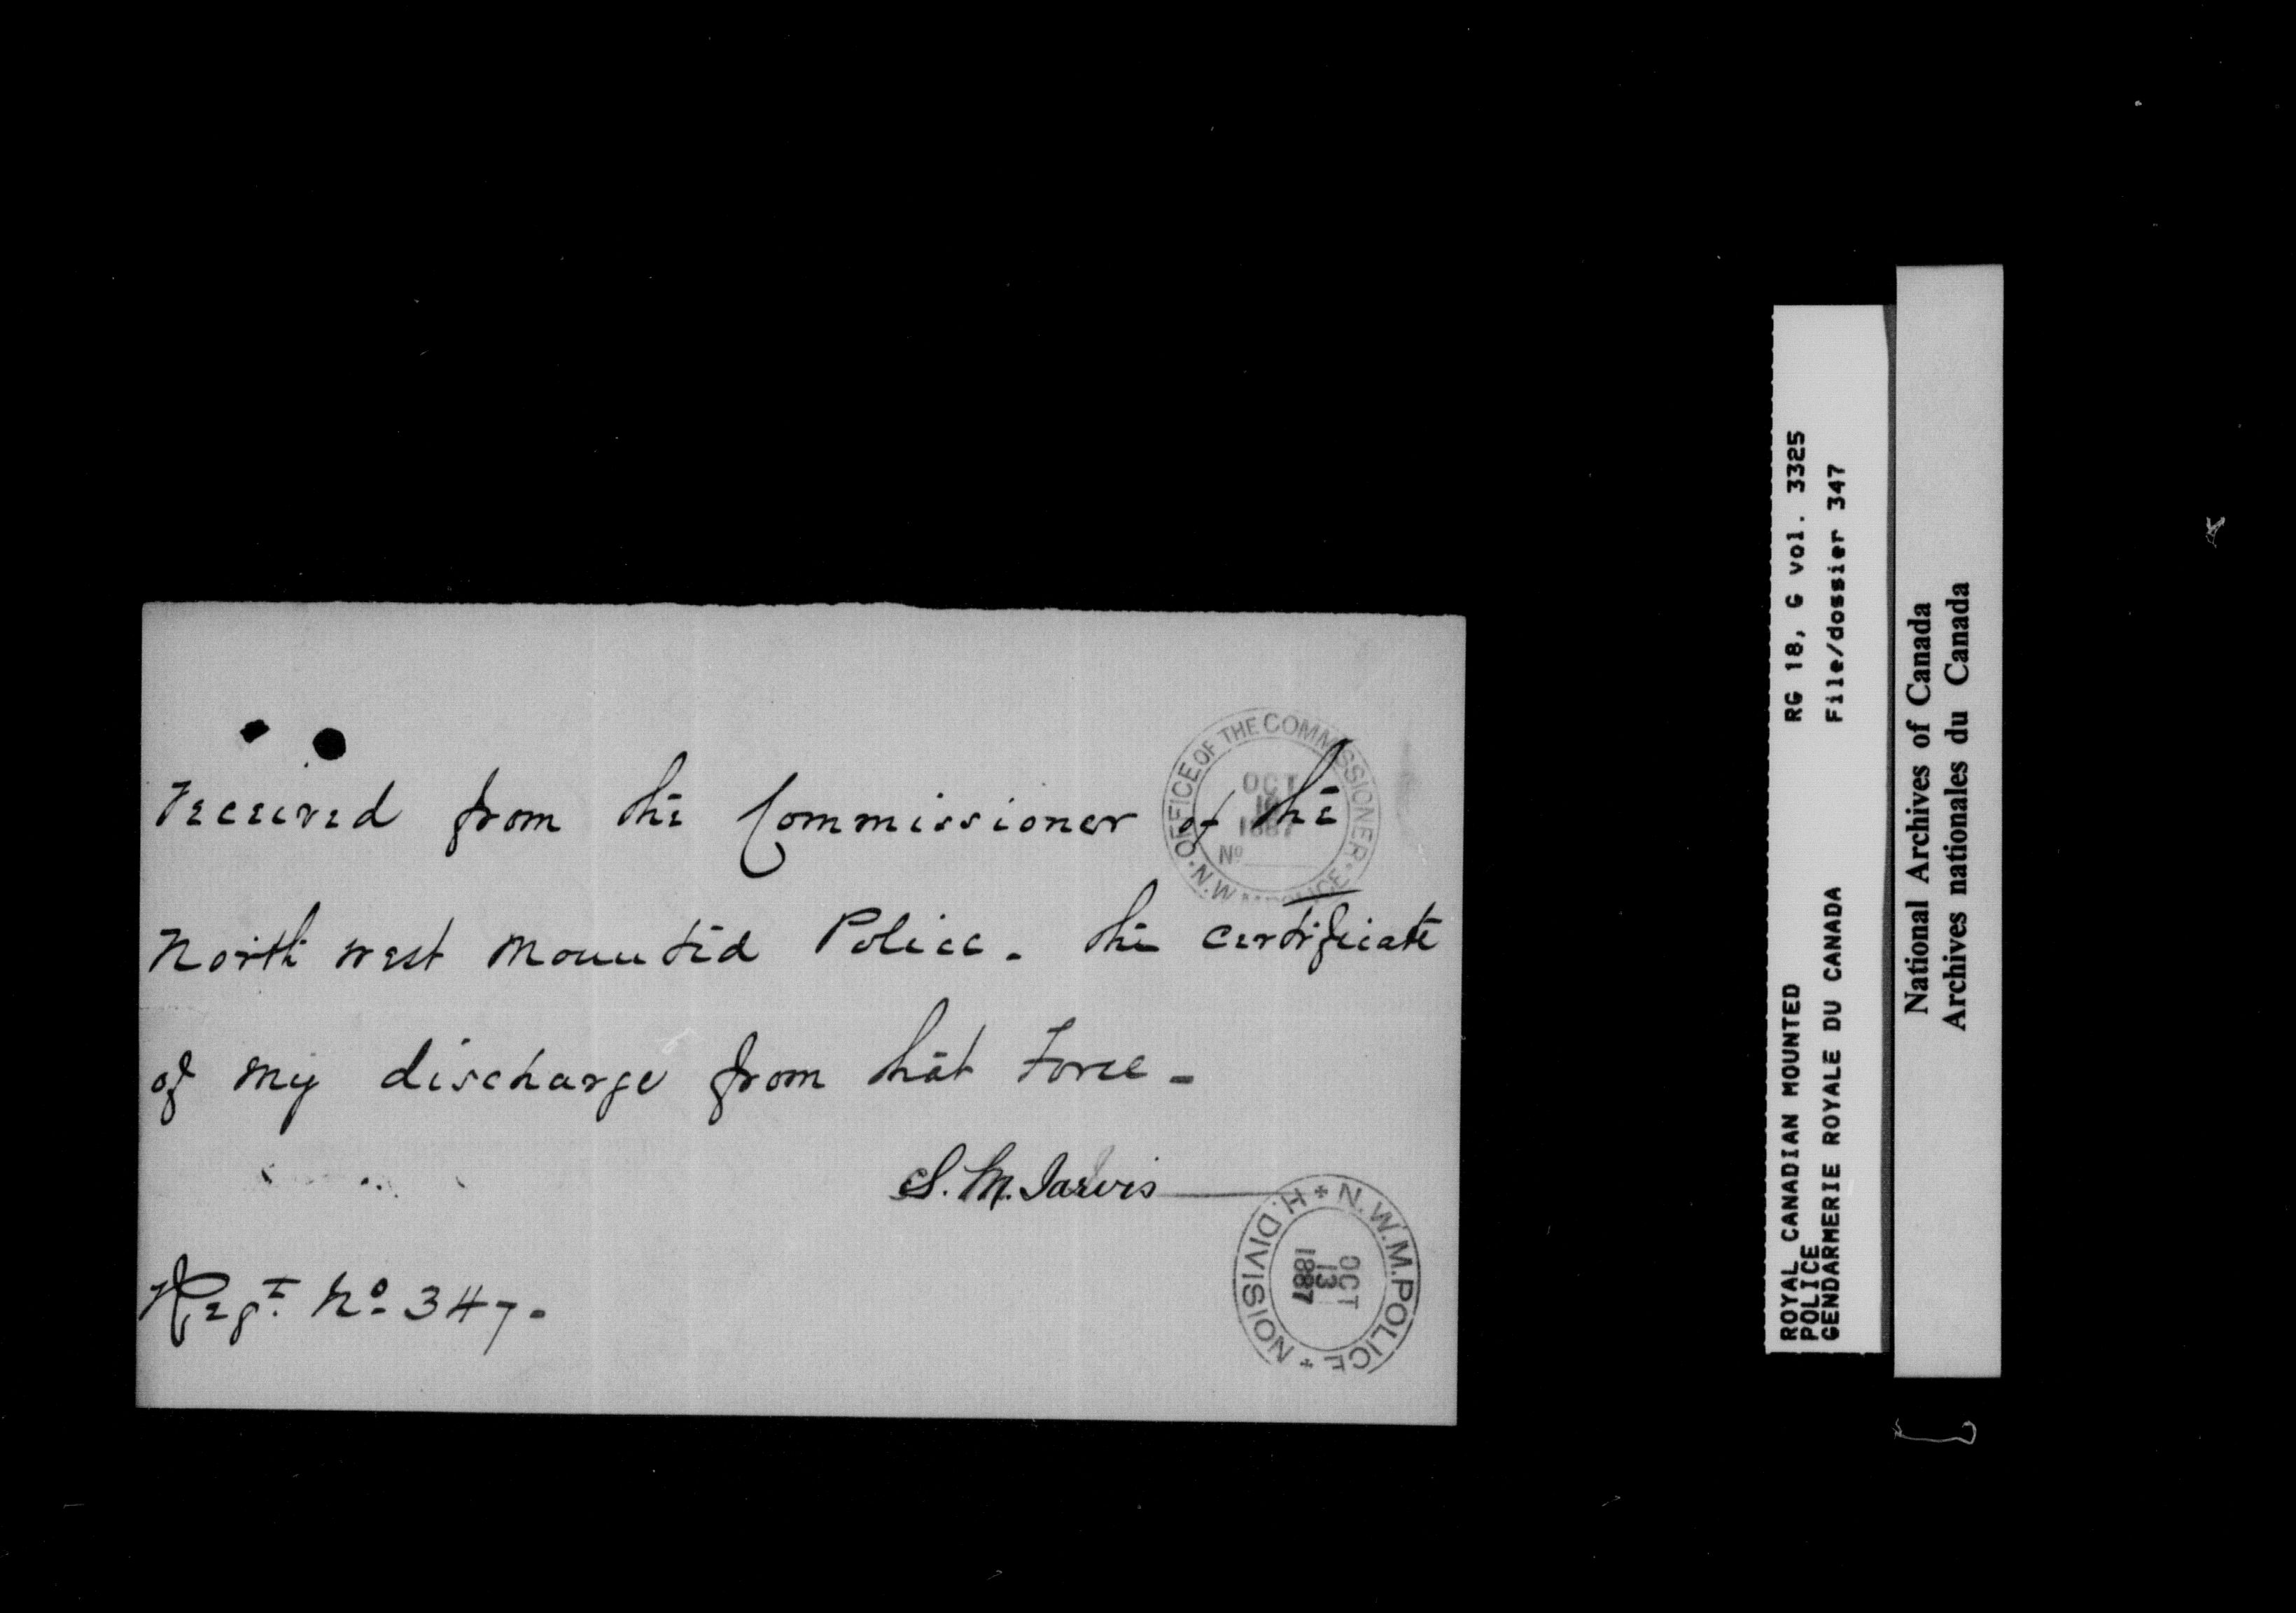 Received from the Commissioner of the
North West Mounted Police. the certificate
of my discharge from that Force -
S. M. Jarvis
Regt. No. 347.
OFFICE OF THE COMMISSIONER
OCT
1887
No
N.W.M. POLICE
N.W.M. POLICE
H. DIVISION
OCT
13
1887
ROYAL CANADIAN MOUNTED
POLICE
GENDARMERIE ROYALE DU CANADA
RG 18, G vol. 3325
File/dossier 347
National Archives of Canada
Archives nationales du Canada